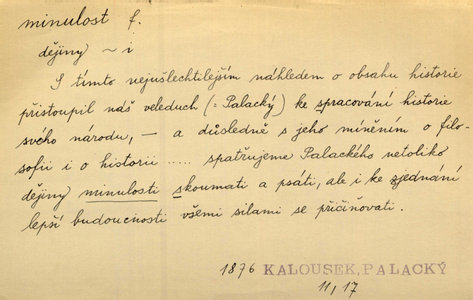 minulost f.
dějiny ~ i
S tímto nejušlechtilejším náhledem o obsahu historie
přistoupil náš veleduch (= Palacký) ke spracování historie
svého národu, — a důsledně s jeho míněním o filo-
sofii i o historii ..... spatřujeme Palackého netoliko
dějiny minulosti skoumati a psáti, ale i ke zjednání
lepší budoucnosti všemi silami se přičiňovati.
1876 KALOUSEK, PALACKÝ
11, 17